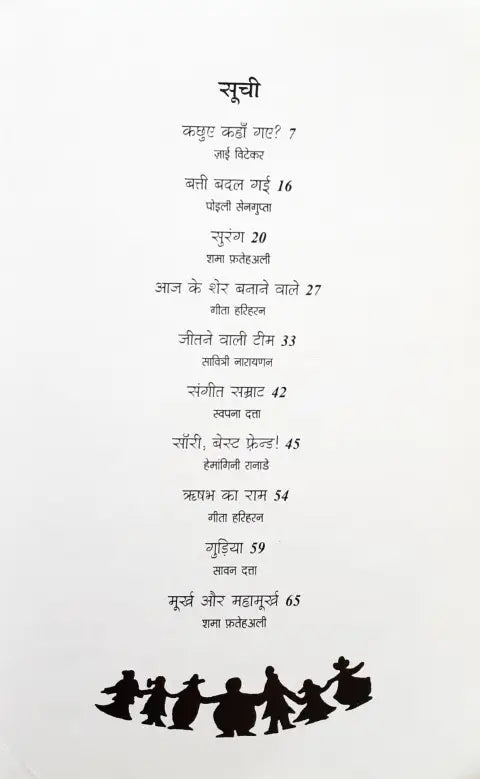 सूची
कछुए कहाँ गए? 7
ज़ाई विटेकर
बत्ती बदल गई 16
पोइली सेनगुप्ता
सुरंग 20
शमा फ़तेहअली
आज के शेर बनाने वाले 27
गीता हरिहरन
जीतने वाली टीम 33
सावित्री नारायणन
संगीत सम्राट 42
स्वपना दत्ता
सॉरी, बेस्ट फ़्रेन्ड! 45
हेमांगिनी रानाडे
ऋषभ का राम 54
गीता हरिहरन
गुड़िया 59
सावन दत्ता
मूर्ख और महामूर्ख 65
शमा फ़तेहअली